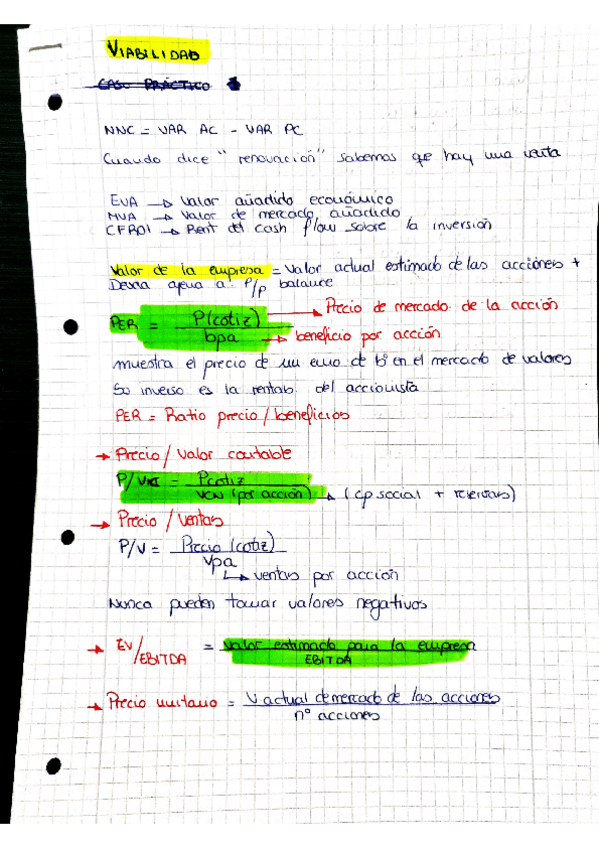 VIABILIDAD
CASO PRÁCTICO 1
NNC = VAR AC - VAR PC
Cuando dice "renovación" sabemos que hay una venta
EVA → Valor añadido económico
MVA → Valor de mercado añadido
CFROI → Rent del cash flow sobre la inversión
Valor de la empresa = Valor actual estimado de las acciones +
Deuda ajena a P/p balance
PER = P(cotiz) / bpa
→ Precio de mercado de la acción
→ beneficio por acción
muestra el precio de un euro de bº en el mercado de valores
Su inverso es la rentab. del accionista
PER = Ratio precio / beneficios
→ Precio / Valor contable
P/VNC = Pcotiz / VCN (por acción) → (cp social + reservas)
→ Precio / Ventas
P/V = Precio (cotiz) / vpa
→ ventas por acción
Nunca pueden tomar valores negativos
→ EV/EBITDA = Valor estimado para la empresa / EBITDA
→ Precio unitario = V actual de mercado de las acciones / nº acciones